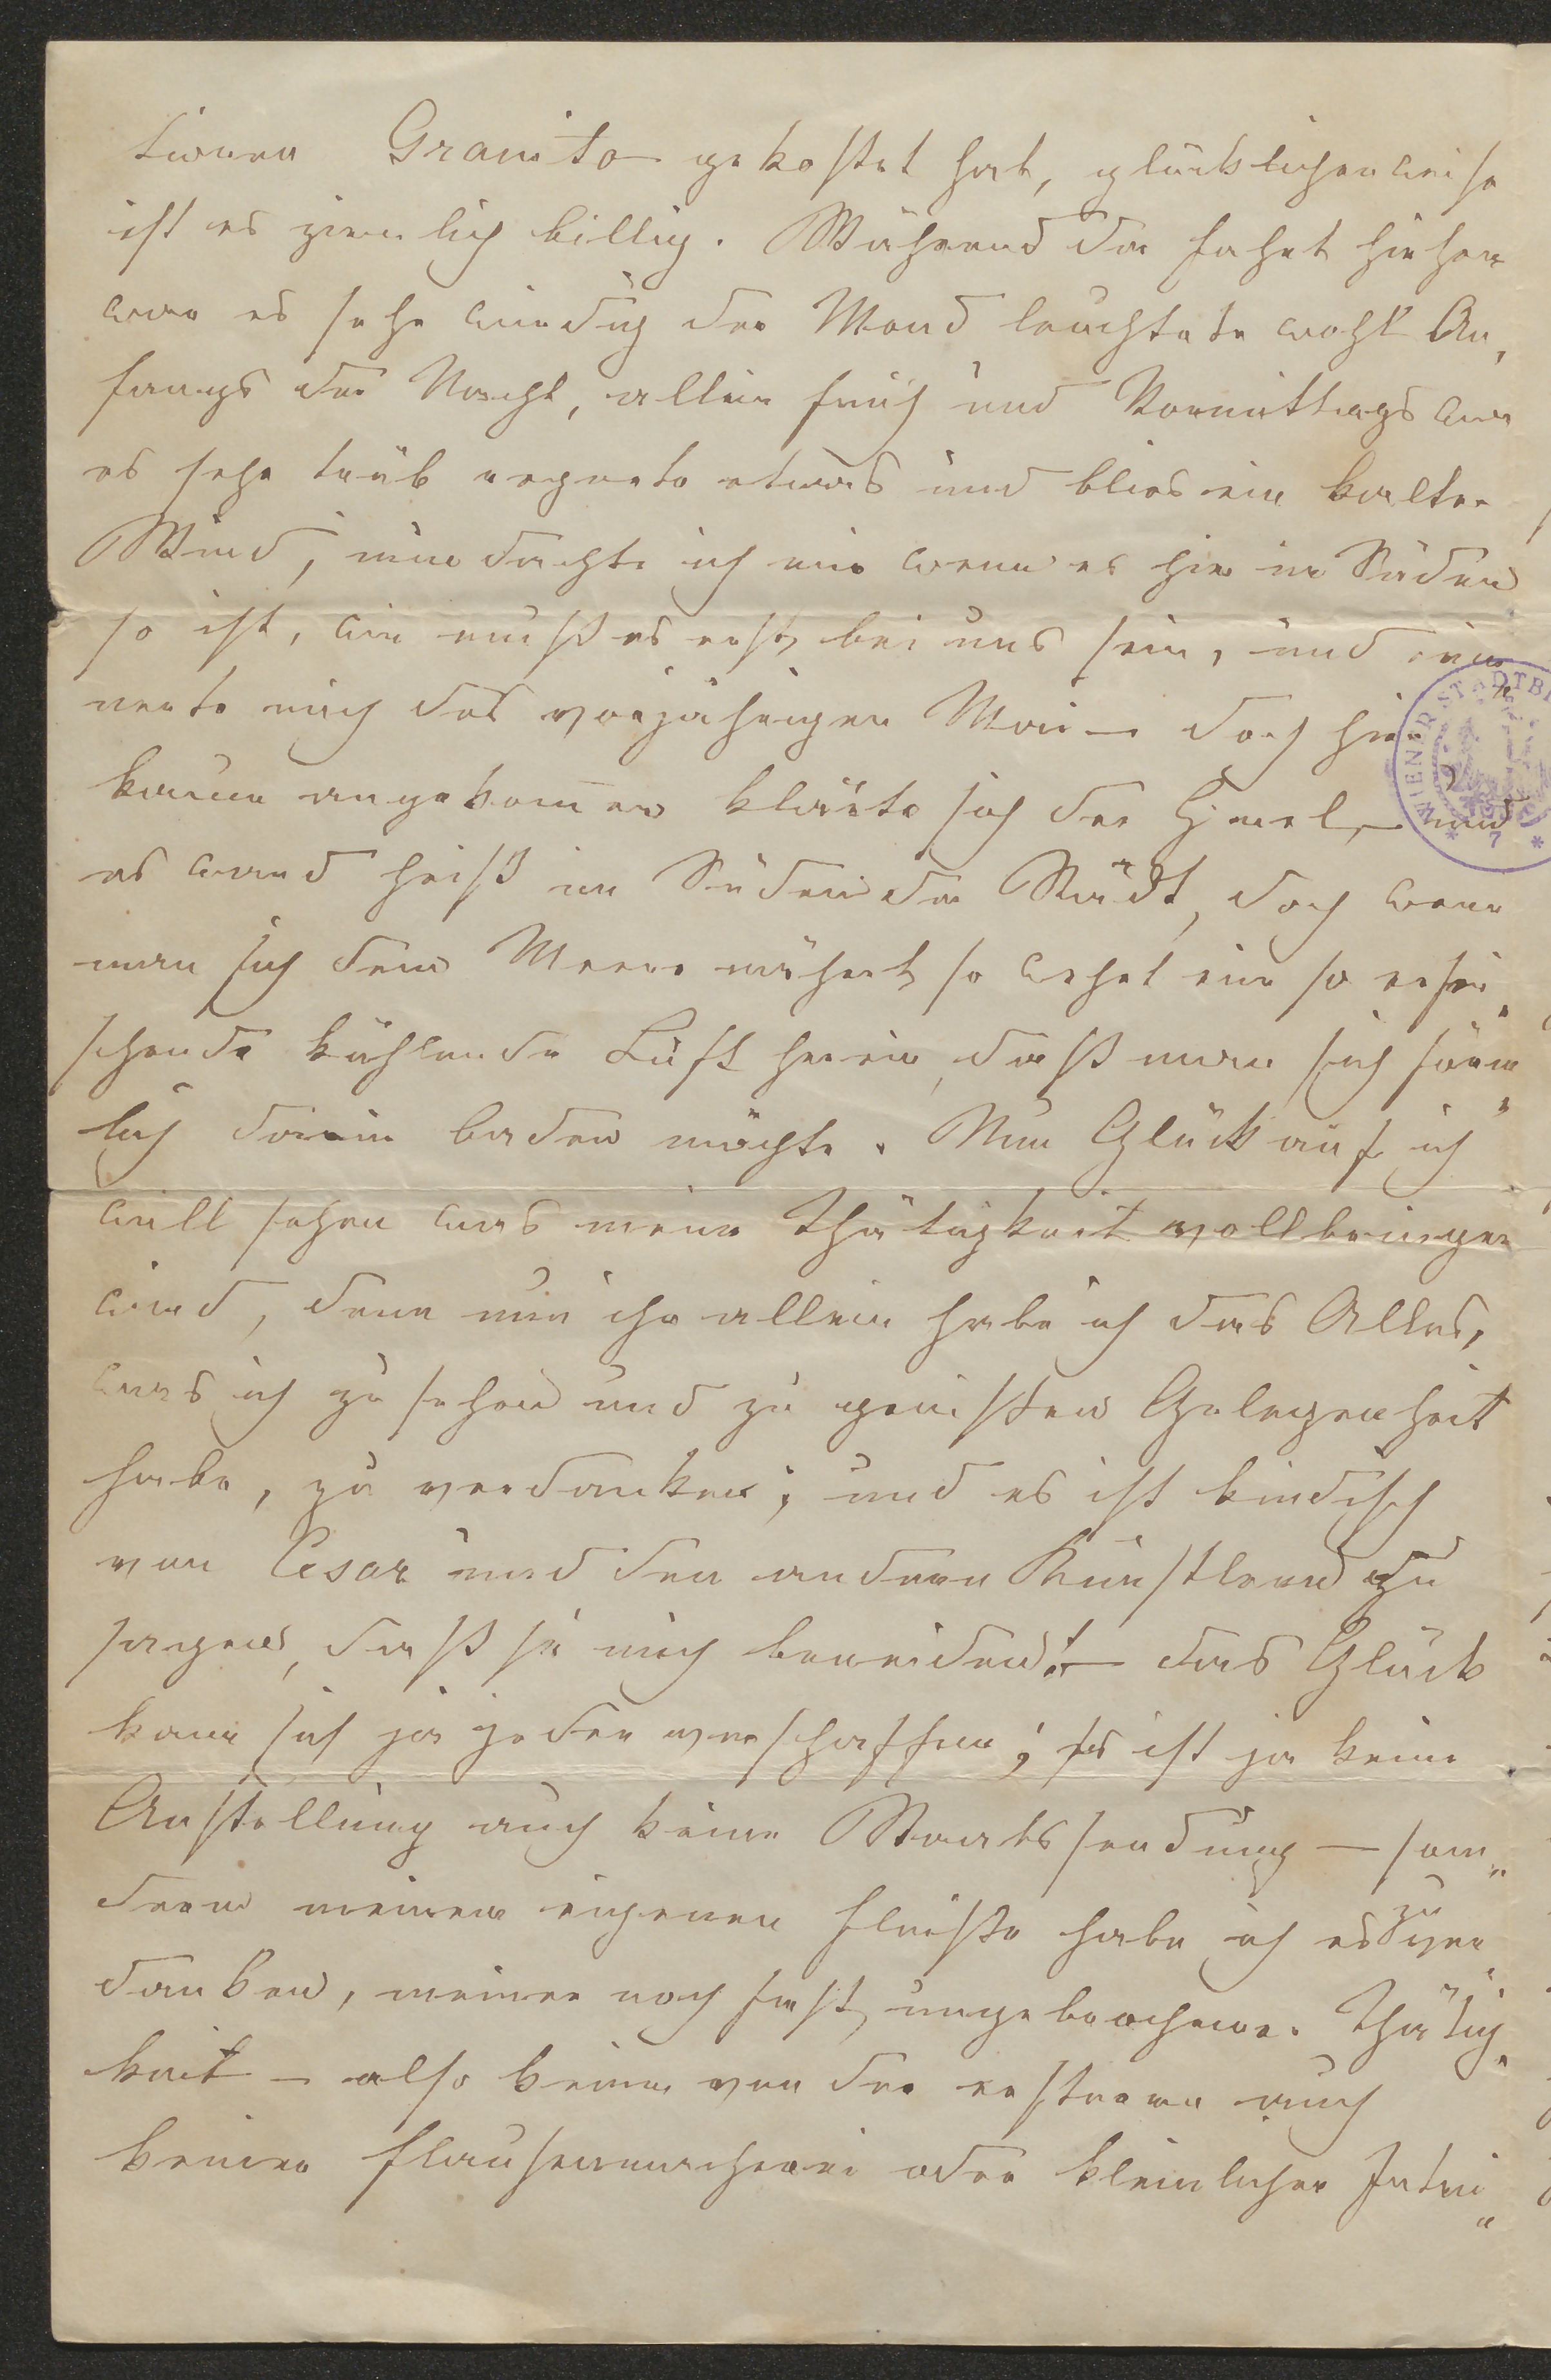 tionen Granito gekostet hat, glücklicherweise
ist es ziemlich billig. Während der Fahrt hieher
war es sehr windig der Mond leuchtete wohl An,
fangs der Nacht, allein früh und Vormittags war
es sehr trüb regnete etwas und blies ein kalter
Wind, nun dachte ich mir wenn es hier im Süden
so ist, wie muß es erst bei uns sein, und erin
nerte mich des vorjährigen Mai – doch hier
kaum angekommen klärte sich der Himel, – und
es ward heiß im Süden der Stadt, doch wenn
man sich dem Meere nähert so wehet eine so erfri„
schende kühlende Luft herein, daß man sich förm„
lich darin baden möchte. Nun Glück auf ich
will sehen was meine Thätigkeit vollbringen
wird, denn nur ihr allein habe ich das Alles,
was ich zu sehen und zu genießen Gelegenheit
habe, zu verdanken; und es ist kindisch
von Cesar und den andern Künstlern zu
sagen, daß sie mich beneiden! – das Glück
kann sich ja jeder verschaffen; es ist ja keine
Anstellung auch keine Staatssendung – son„
dern meinem eigenen Fleiße habe ich es zu ver„
danken, meiner noch fast ungebrochenen Thätig„
keit – also keiner von der ersteren auch
keiner Flausenmacherei oder kleinlicher Intri„
WIENER STADTBI